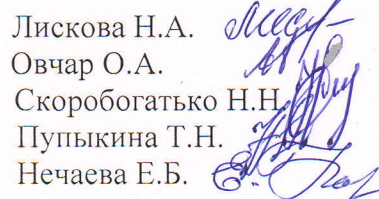 Лискова Н.А.
Овчар О.А.
Скоробогатько Н.Н.
Пупыкина Т.Н.
Нечаева Е.Б.